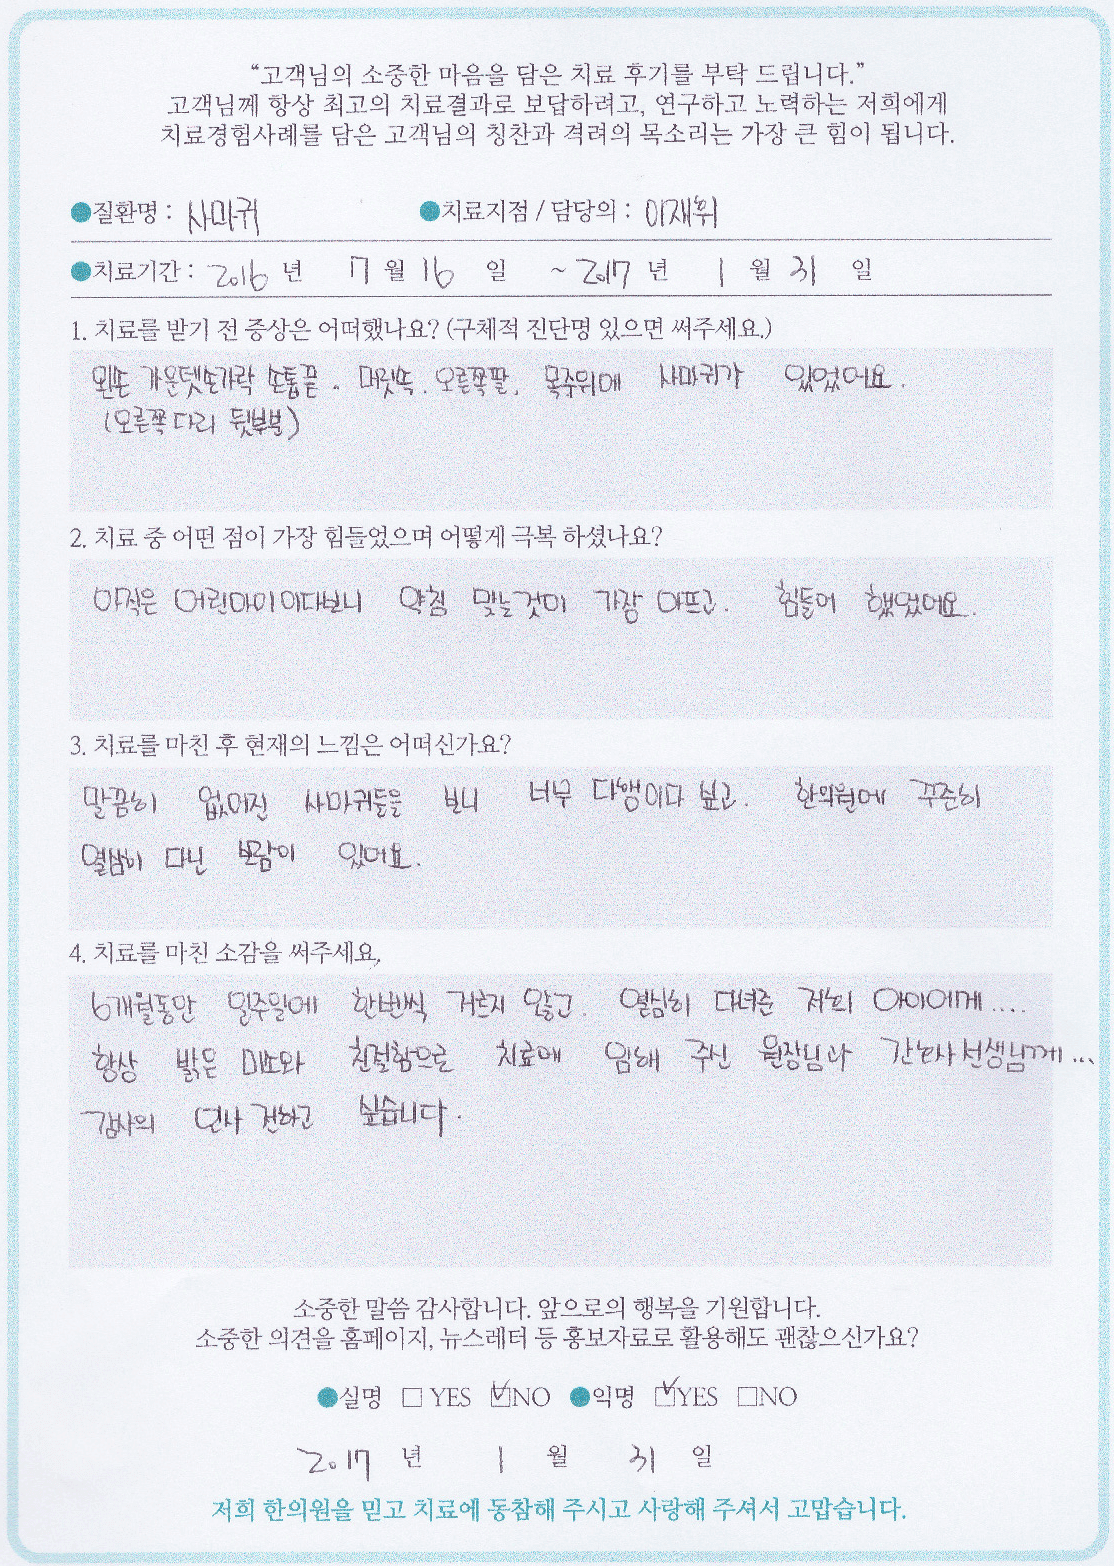 “고객님의 소중한 마음을 담은 치료 후기를 부탁 드립니다.”
고객님께 항상 최고의 치료결과로 보답하려고, 연구하고 노력하는 저희에게
치료경험사례를 담은 고객님의 칭찬과 격려의 목소리는 가장 큰 힘이 됩니다.
●질환명 : 사마귀 ●치료지점 / 담당의 : 이재휘
●치료기간 : 2016 년 7 월 16 일 ~ 2017 년 1 월 31 일
1. 치료를 받기 전 증상은 어떠했나요? (구체적 진단명 있으면 써주세요.)
왼손 가운뎃손가락 손톱끝. 머릿속. 오른쪽팔. 목주위에 사마귀가 있었어요.
(오른쪽 다리 뒷부분)
2. 치료 중 어떤 점이 가장 힘들었으며 어떻게 극복 하셨나요?
아직은 어린아이이다보니 약침 맞는것이 가장 아프고. 힘들어 했었어요.
3. 치료를 마친 후 현재의 느낌은 어떠신가요?
말끔히 없어진 사마귀들을 보니 너무 다행이다 싶고. 한의원에 꾸준히
열심히 다닌 보람이 있어요.
4. 치료를 마친 소감을 써주세요.
6개월동안 일주일에 한번씩 거르지 않고. 열심히 다녀준 저희 아이에게....
항상 밝은 미소와 친절함으로 치료에 임해 주신 원장님과 간호사 선생님께...
감사의 인사 전하고 싶습니다.
소중한 말씀 감사합니다. 앞으로의 행복을 기원합니다.
소중한 의견을 홈페이지, 뉴스레터 등 홍보자료로 활용해도 괜찮으신가요?
●실명 □ YES ☑NO ●익명 ☑YES □NO
2017 년 1 월 31 일
저희 한의원을 믿고 치료에 동참해 주시고 사랑해 주셔서 고맙습니다.